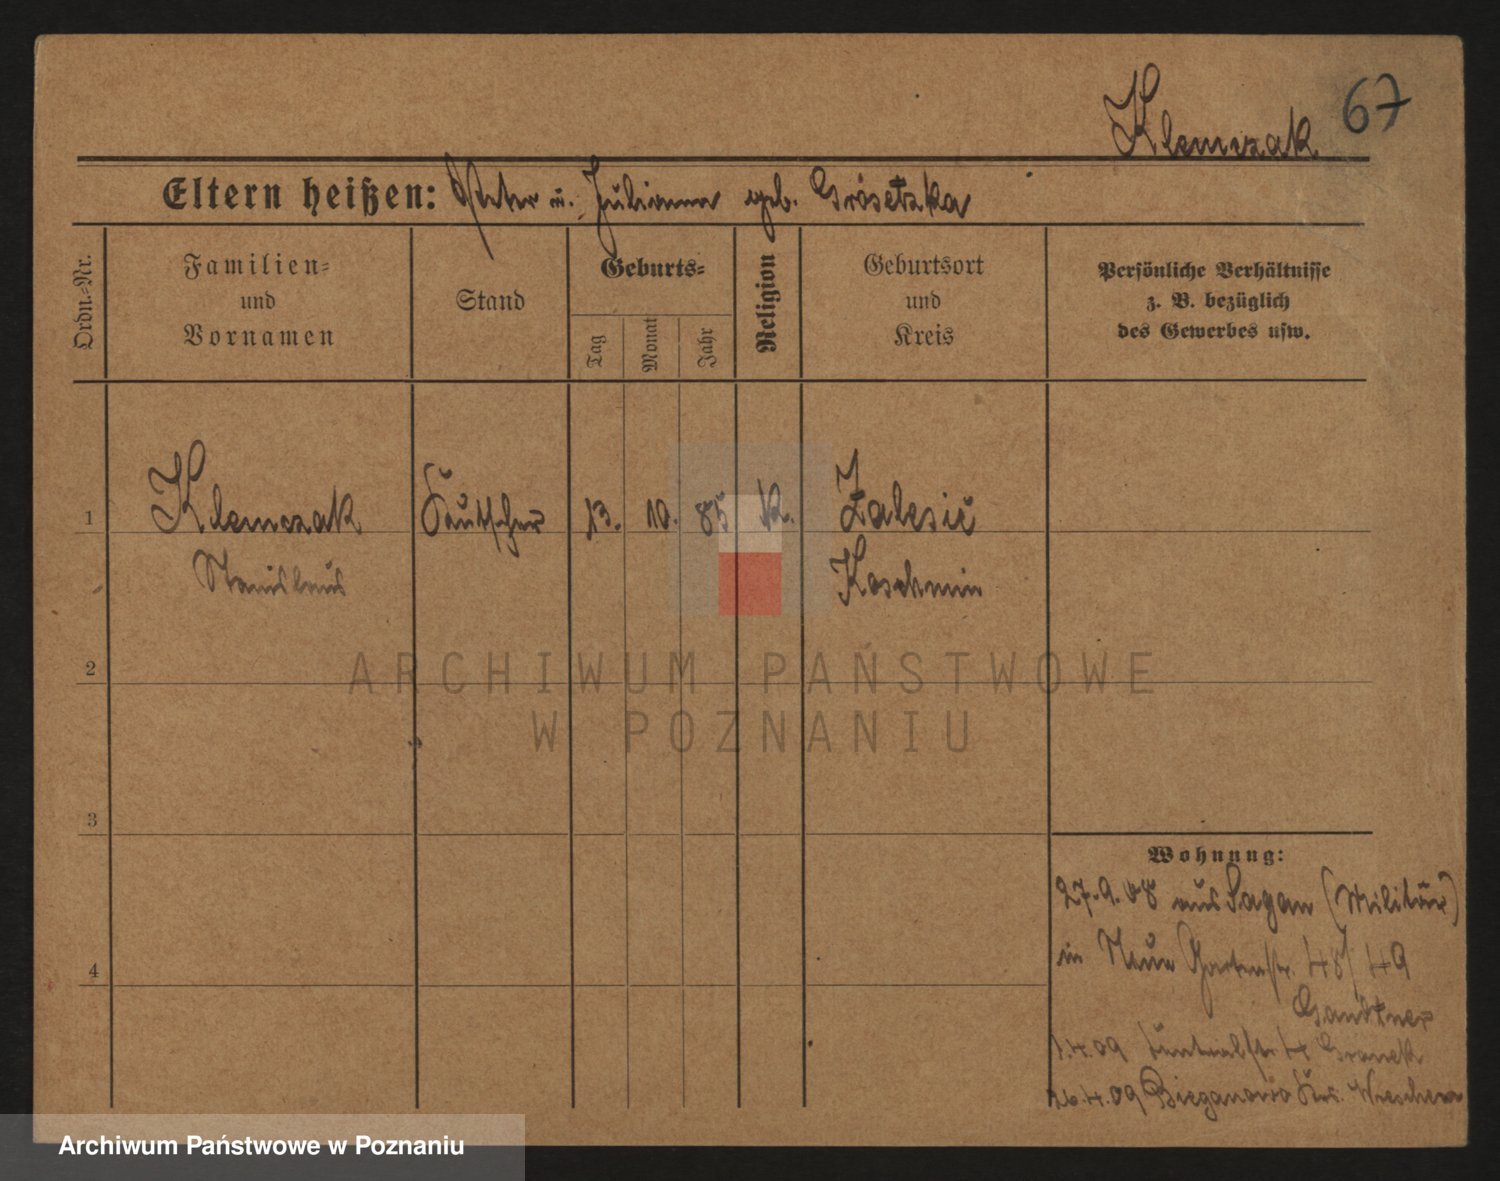 Klemczak 67
Eltern heißen: Peter u. Julianna geb. Grósetzka
Ordn.-Nr.
Familien-
und
Vornamen
Stand
Geburts-
Tag
Monat
Jahr
Religion
Geburtsort
und
Kreis
Persönliche Verhältnisse
z. B. bezüglich
des Gewerbes usw.
1 Klemczak 13. 10. 85 K. Zalesie
Stanislaus Koschmin
2
ARCHIWUM PAŃSTWOWE
W POZNANIU
3
Wohnung:
27.9.08 aus Sagan (Militär)
in Neue Gartenstr. 48/49
4
1.4.09 4
26.4.09 Bieganowo Krs. Wreschen
Archiwum Państwowe w Poznaniu